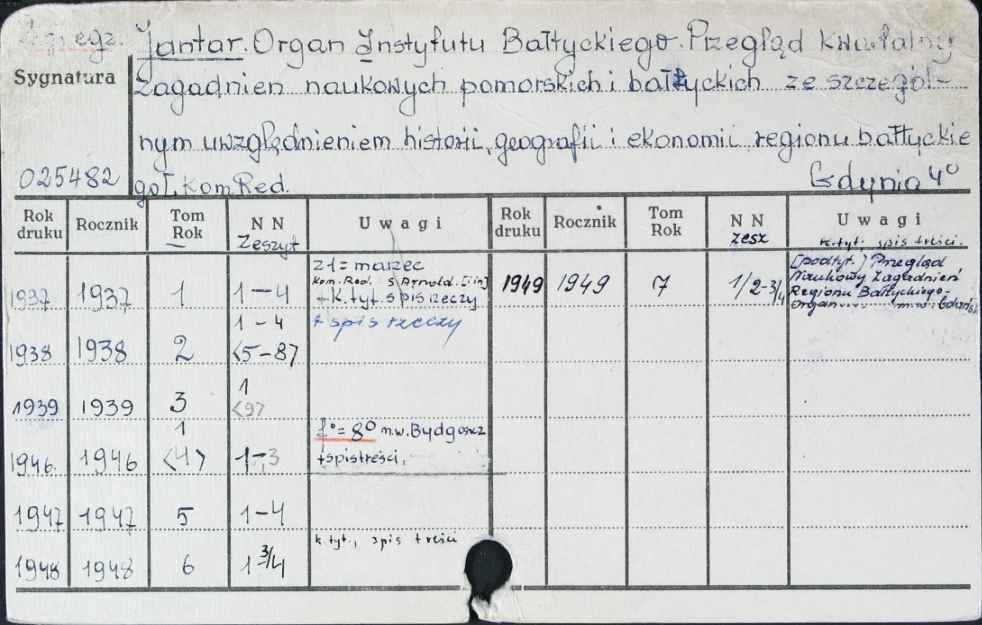 egz. Jantar. Organ Instytutu Bałtyckiego. Przegląd kwartalny
Sygnatura zagadnien naukowych pomorskich i bałtyckich ze szczegól-
nym uwzględnieniem historii, geografii i ekonomii regionu bałtyckie
025482 go. Kom. Red. Gdynia 4°
Rok druku Rocznik Tom Rok N N Zeszyt Uwagi Rok druku Rocznik Tom Rok N N zesz Uwagi
k.tyt. spis treści.
1937 1937 1 1-4 z 1 = marzec
Kom. Red. S. Arnold. [i in]
+ K. tyt. spis rzeczy
1949 1949 7 1/2-3/4 [podtyt.] Przegląd
Naukowy Zagadnień
Regionu Bałtyckiego-
Organ..... m.w: Gdańsk
1938 1938 2 1-4 <5-8> + spis rzeczy
1939 1939 3 1 <9>
1946. 1946 1 <4> 1-3 f° = 8° m.w. Bydgoszcz
+ spis treści.
1947 1947 5 1-4
1948 1948 6 1 3/4 k.tyt., spis treści